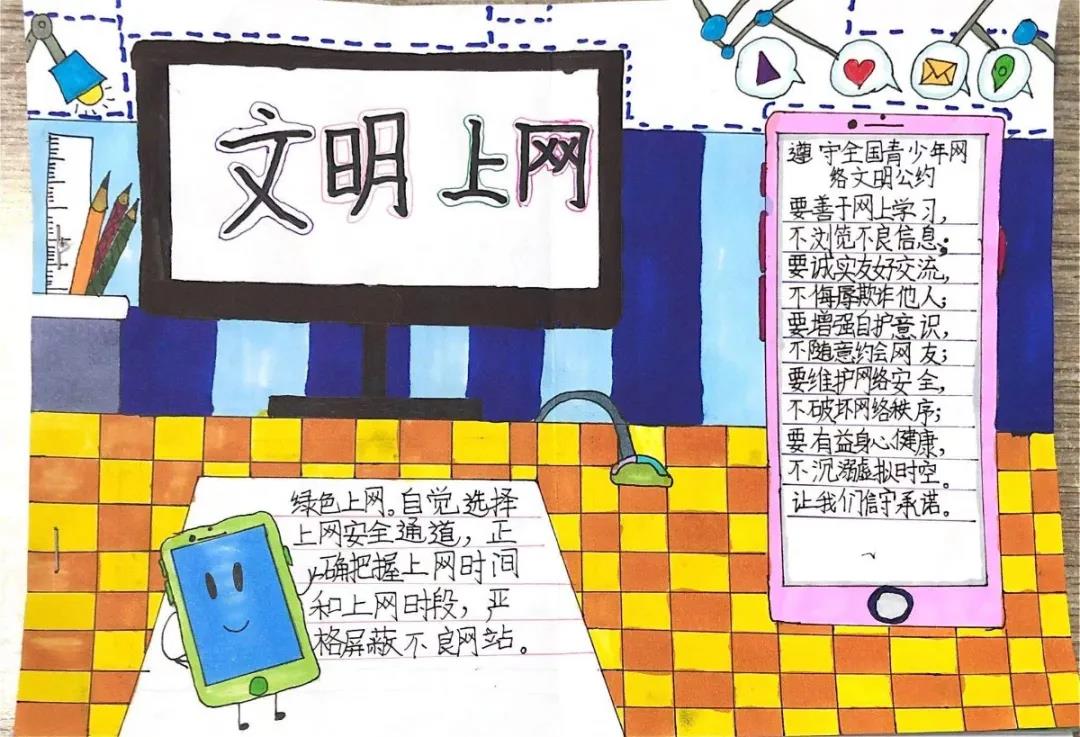 文明上网
遵守全国青少年网
络文明公约
要善于网上学习，
不浏览不良信息；
要诚实友好交流，
不侮辱欺诈他人；
要增强自护意识，
不随意约会网友；
要维护网络安全，
不破坏网络秩序；
要有益身心健康，
不沉溺虚拟时空。
让我们信守承诺。
绿色上网。自觉选择
上网安全通道，正
确把握上网时间
和上网时段，严
格屏蔽不良网站。